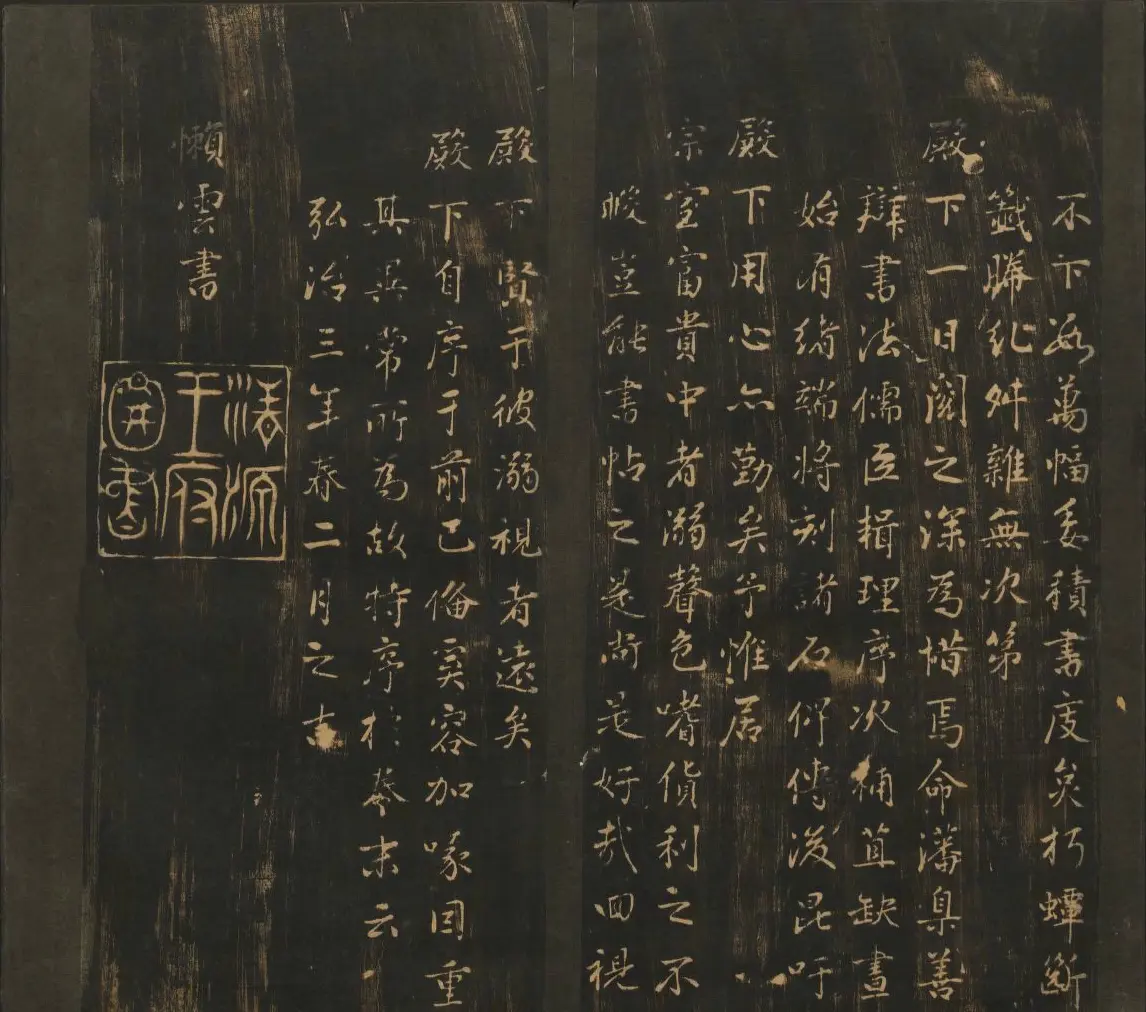 不下數萬幅委積書度矣朽蟫斷
籤勝紀舛雜無次第
殿下一日閱之深為惜焉命藩臬善
辯書法儒臣揖理序次補苴缺畫
始有緒端將刻諸石俾傳後昆吁
殿下用心亦勤矣予惟居
宗室富貴中者溺聲色嗜貨利之不
暇豈能書帖之是尚是好哉回視
殿下賢于彼溺視者遠矣
殿下自序于前已倫奐容加喙因重
其異常所為故特序於卷末云
弘治三年春二月之吉
懶雲書
清源王府圖書